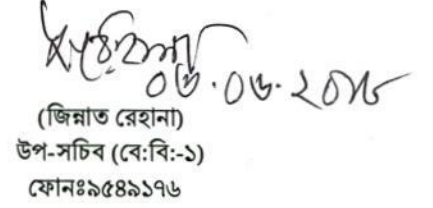 ০৬.০৬.২০১৮
(জিন্নাত রেহানা)
উপ-সচিব (বে:বি:-১)
ফোনঃ৯৫৪৯১৭৬